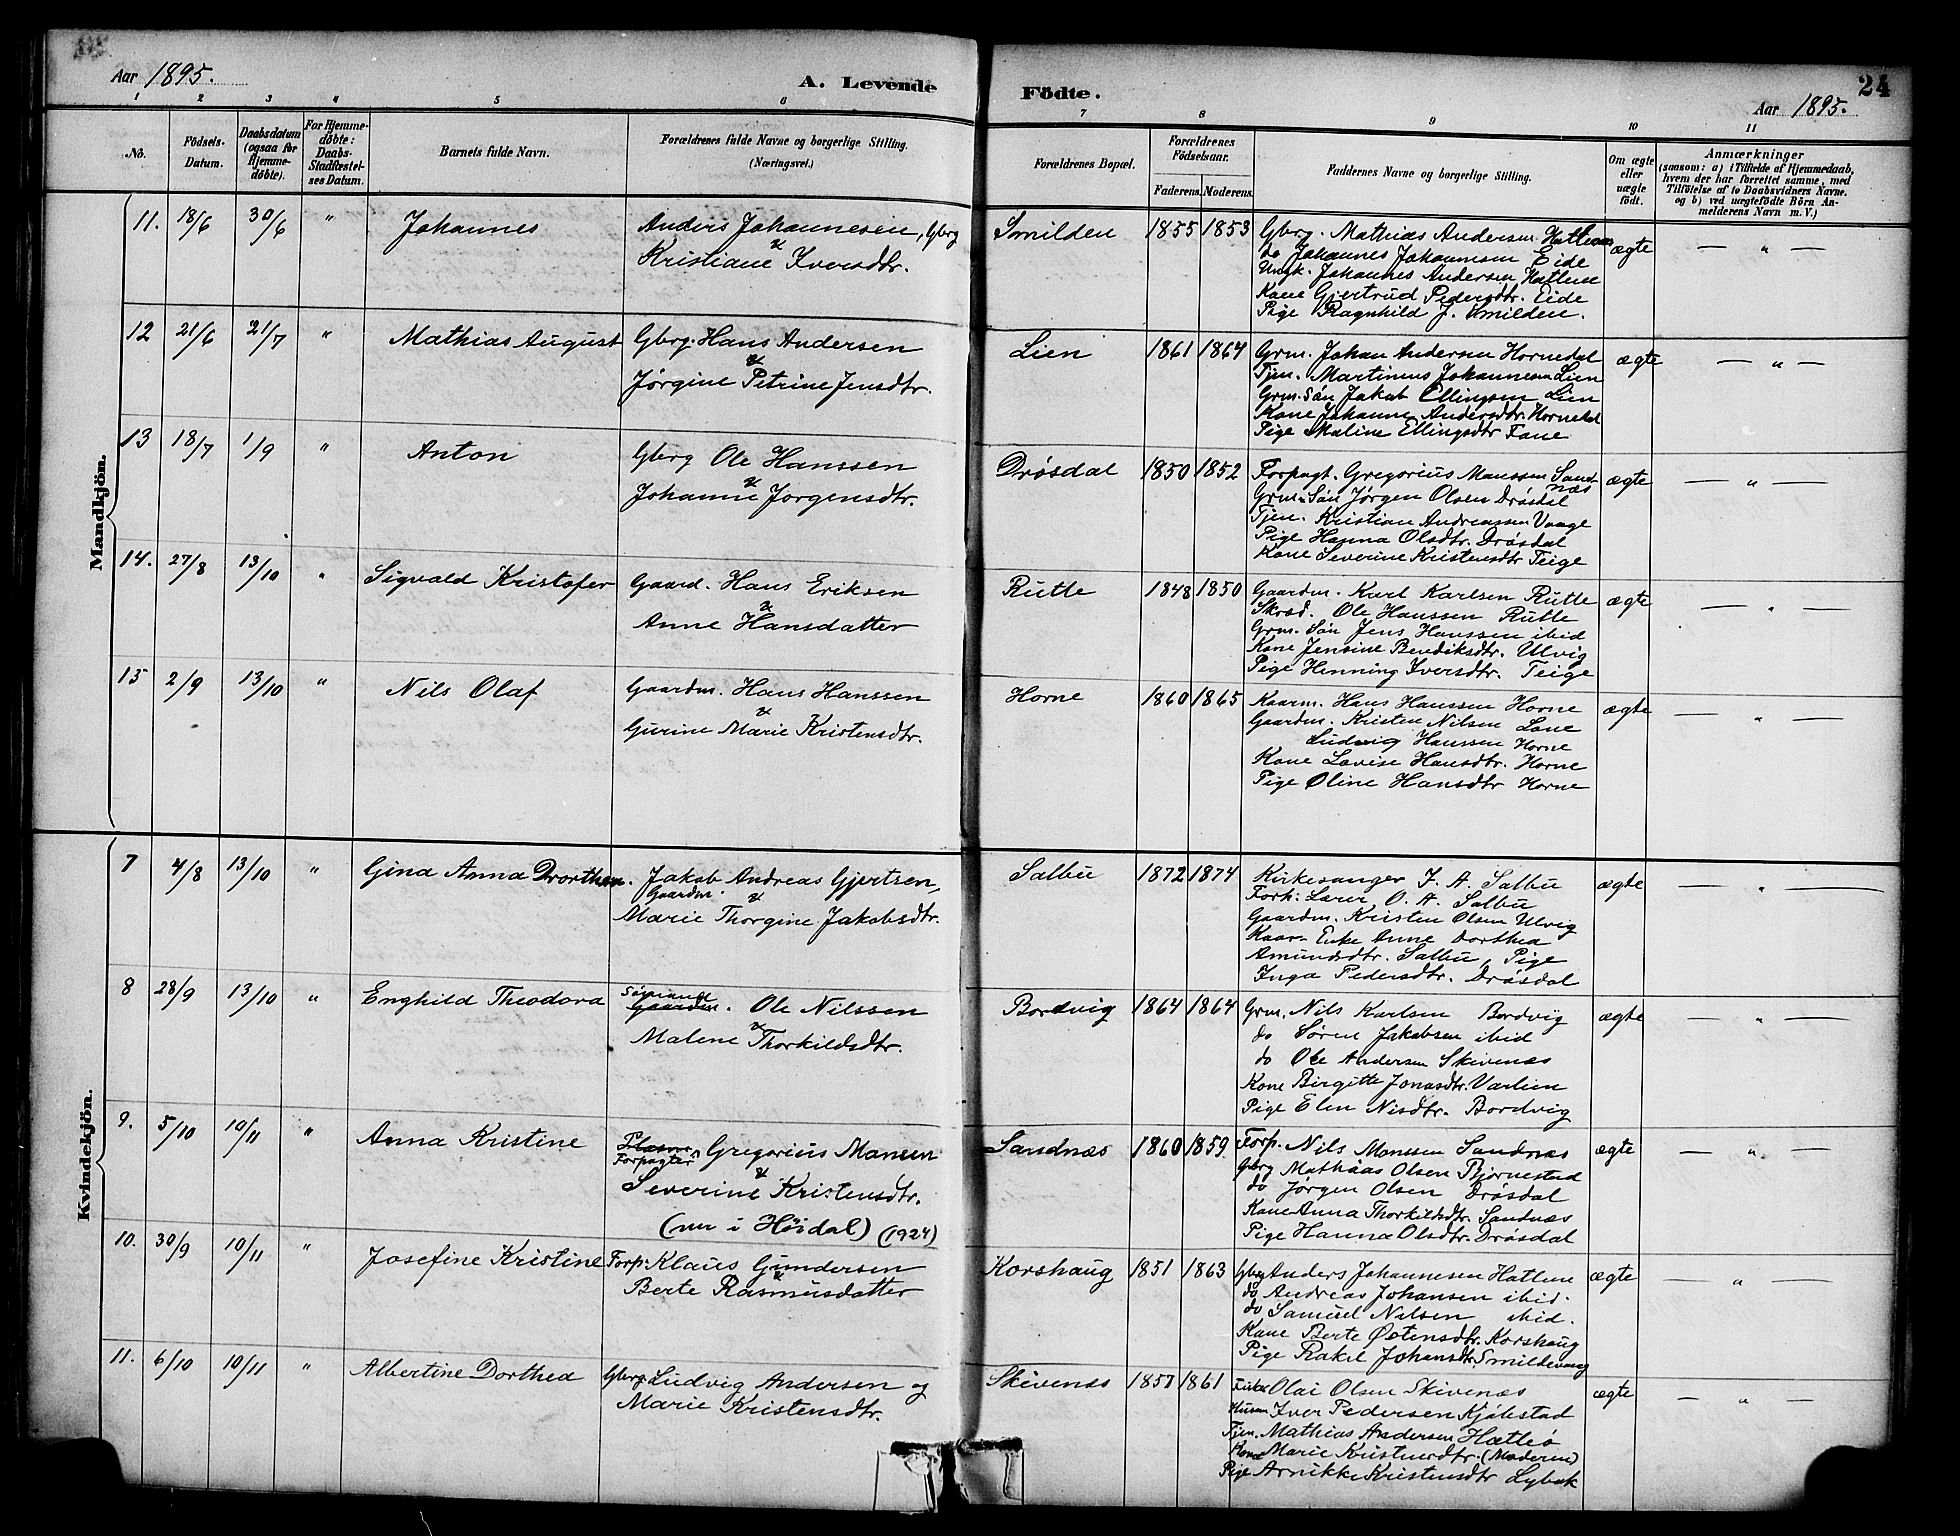 Aar 1895.
A. Levende Födte.
24
Aar 1895.
1 2 3 4 5 6 7 8 9 10 11
No.
Födsels-Datum.
Daabsdatum (ogsaa for Hjemme-döbte).
For Hjemme-döbte: Daabs-Stadfæstel-ses Datum.
Barnets fulde Navn.
Forældrenes fulde Navne og borgerlige Stilling. (Næringsvei.)
Forældrenes Bopæl.
Forældrenes Födselsaar.
Faderens. Moderens.
Faddernes Navne og borgerlige Stilling.
Om ægte eller uægte födt.
Anmærkninger
(saasom: a) i Tilfælde af Hjemmedaab,
hvem der har forrettet samme, med
Tilföielse af to Daabsvidners Navne.
og b) ved uægtefödte Börn An-
melderens Navn m. V.)
Mandkjön.
11. 18/6 30/6 " Johannes
Anders Johannesen, Gbrg
&
Kristiane Iversdtr.
Smilden 1855 1853
Gbrg. Mathias Andersen Hatlem
do Johannes Johannesen Eide
Ungk. Johannes Andersen Hatlem
Kone Gjertrud Pedersdtr. Eide
Pige Ragnhild J. Smilden.
ægte — " —
12 21/6 21/7 " Mathias August
Gbrg. Hans Andersen
&
Jørgine Petrine Jensdtr.
Lien 1861 1864
Grm. Johan Andersen Hornedal
Tjen. Martinus Johannesen Lien
Grm. Søn Jakob Ellingsen Lien
Kone Johanne Andersdtr. Hornedal
Pige Maline Ellingsdtr Fane
ægte — " —
13 18/7 1/9 " Anton
Gbrg Ole Hanssen
&
Johanne Jorgensdtr.
Drösdal 1850 1852
Forpagt. Gregorius Manssen Sand-
næs
Grm. Søn Jørgen Olsen Drösdal
Tjen. Kristian Andreassen Vaage
Pige Hanna Olsdtr. Drösdal
Kone Severine Kristensdtr Teige
ægte — " —
14. 27/8 13/10 " Sigvald Kristofer
Gaard. Hans Eriksen
&
Anne Hansdatter
Rutle 1848 1850
Gaardm. Karl Karlsen Rutle
Skræd. Ole Hanssen Rutle
Grm. Søn Jens Hanssen ibid
Kone Jensine Bendiksdtr. Ulvig
Pige Henning Iversdtr. Teige
ægte — " —
15 2/9 13/10 " Nils Olaf
Gaardm. Hans Hanssen
&
Gurine Marie Kristensdtr.
Horne 1860 1865
Kaarm. Hans Hanssen Horne
Gaardm. Kristen Nilsen Lone
Ludvig Hanssen Horne
Kone Lovise Hansdtr. Horne
Pige Oline Hansdtr Horne
ægte — " —
Kvindekjön.
7 4/8 13/10 " Gina Anna Dorthea.
Jakob Andreas Gjertsen,
Gaardm &
Marie Thorgine Jakobsdtr.
Salbu 1872 1874
Kirkesanger J. A. Salbu
Forh: Lærer O. A. Salbu
Gaardm. Kristen Olsen Ulvig
Kaar- Enke Anne Dorthea
Amundsdtr. Salbu, Pige
Inga Pedersdtr. Drösdal
ægte — " —
8 28/9 13/10 " Enghild Theodora
Sømand
Gaardm. Ole Nilssen
&
Malene Thorkildsdtr.
Bordvig 1864 1864
Grm. Nils Karlsen Bordvig
do Søren Jakobsen ibid
do Ole Andersen Skivenæs
Kone Birgitte Jonasdtr. Varlien
Pige Elen Nisdtr. Bordvig
ægte — " —
9. 5/10 10/11 " Anna Kristine
Pladsm.
Forpagter Gregorius Mansen
&
Severine Kristensdtr.
(nu i Höidal) (1924)
Sandnæs 1860 1859
Forp. Nils Monssen Sandnæs
Gbrg Mathias Olsen Bjørnestad
do Jørgen Olsen Drösdal
Kone Anna Thorkildsdtr. Sandnæs
Pige Hanna Olsdtr. Drösdal
ægte — " —
10. 30/9 10/11 " Josefine Kristine
Forp. Klaus Gundersen
&
Berte Rasmusdatter
Korshaug 1851 1863
Gbrg Anders Johannesen Hatlem
do Andreas Johansen ibid.
do Samuel Nilsen ibid.
Kone Berte Østensdtr. Korshaug
Pige Rakel Johansdtr. Smildevang
ægte — " —
11. 6/10 10/11 " Albertine Dorthea
Gbrg. Ludvig Andersen og
Marie Kristensdtr.
Skivenæs 1857 1861
Olai Olsen Skivenæs
Husm Iver Pedersen Kjöbstad
Tjen. Mathias Andersen Hatleö
Kone Marie Kristensdtr (Moderen)
Pige Arnikke Kristensdtr Lybæk
ægte — " —